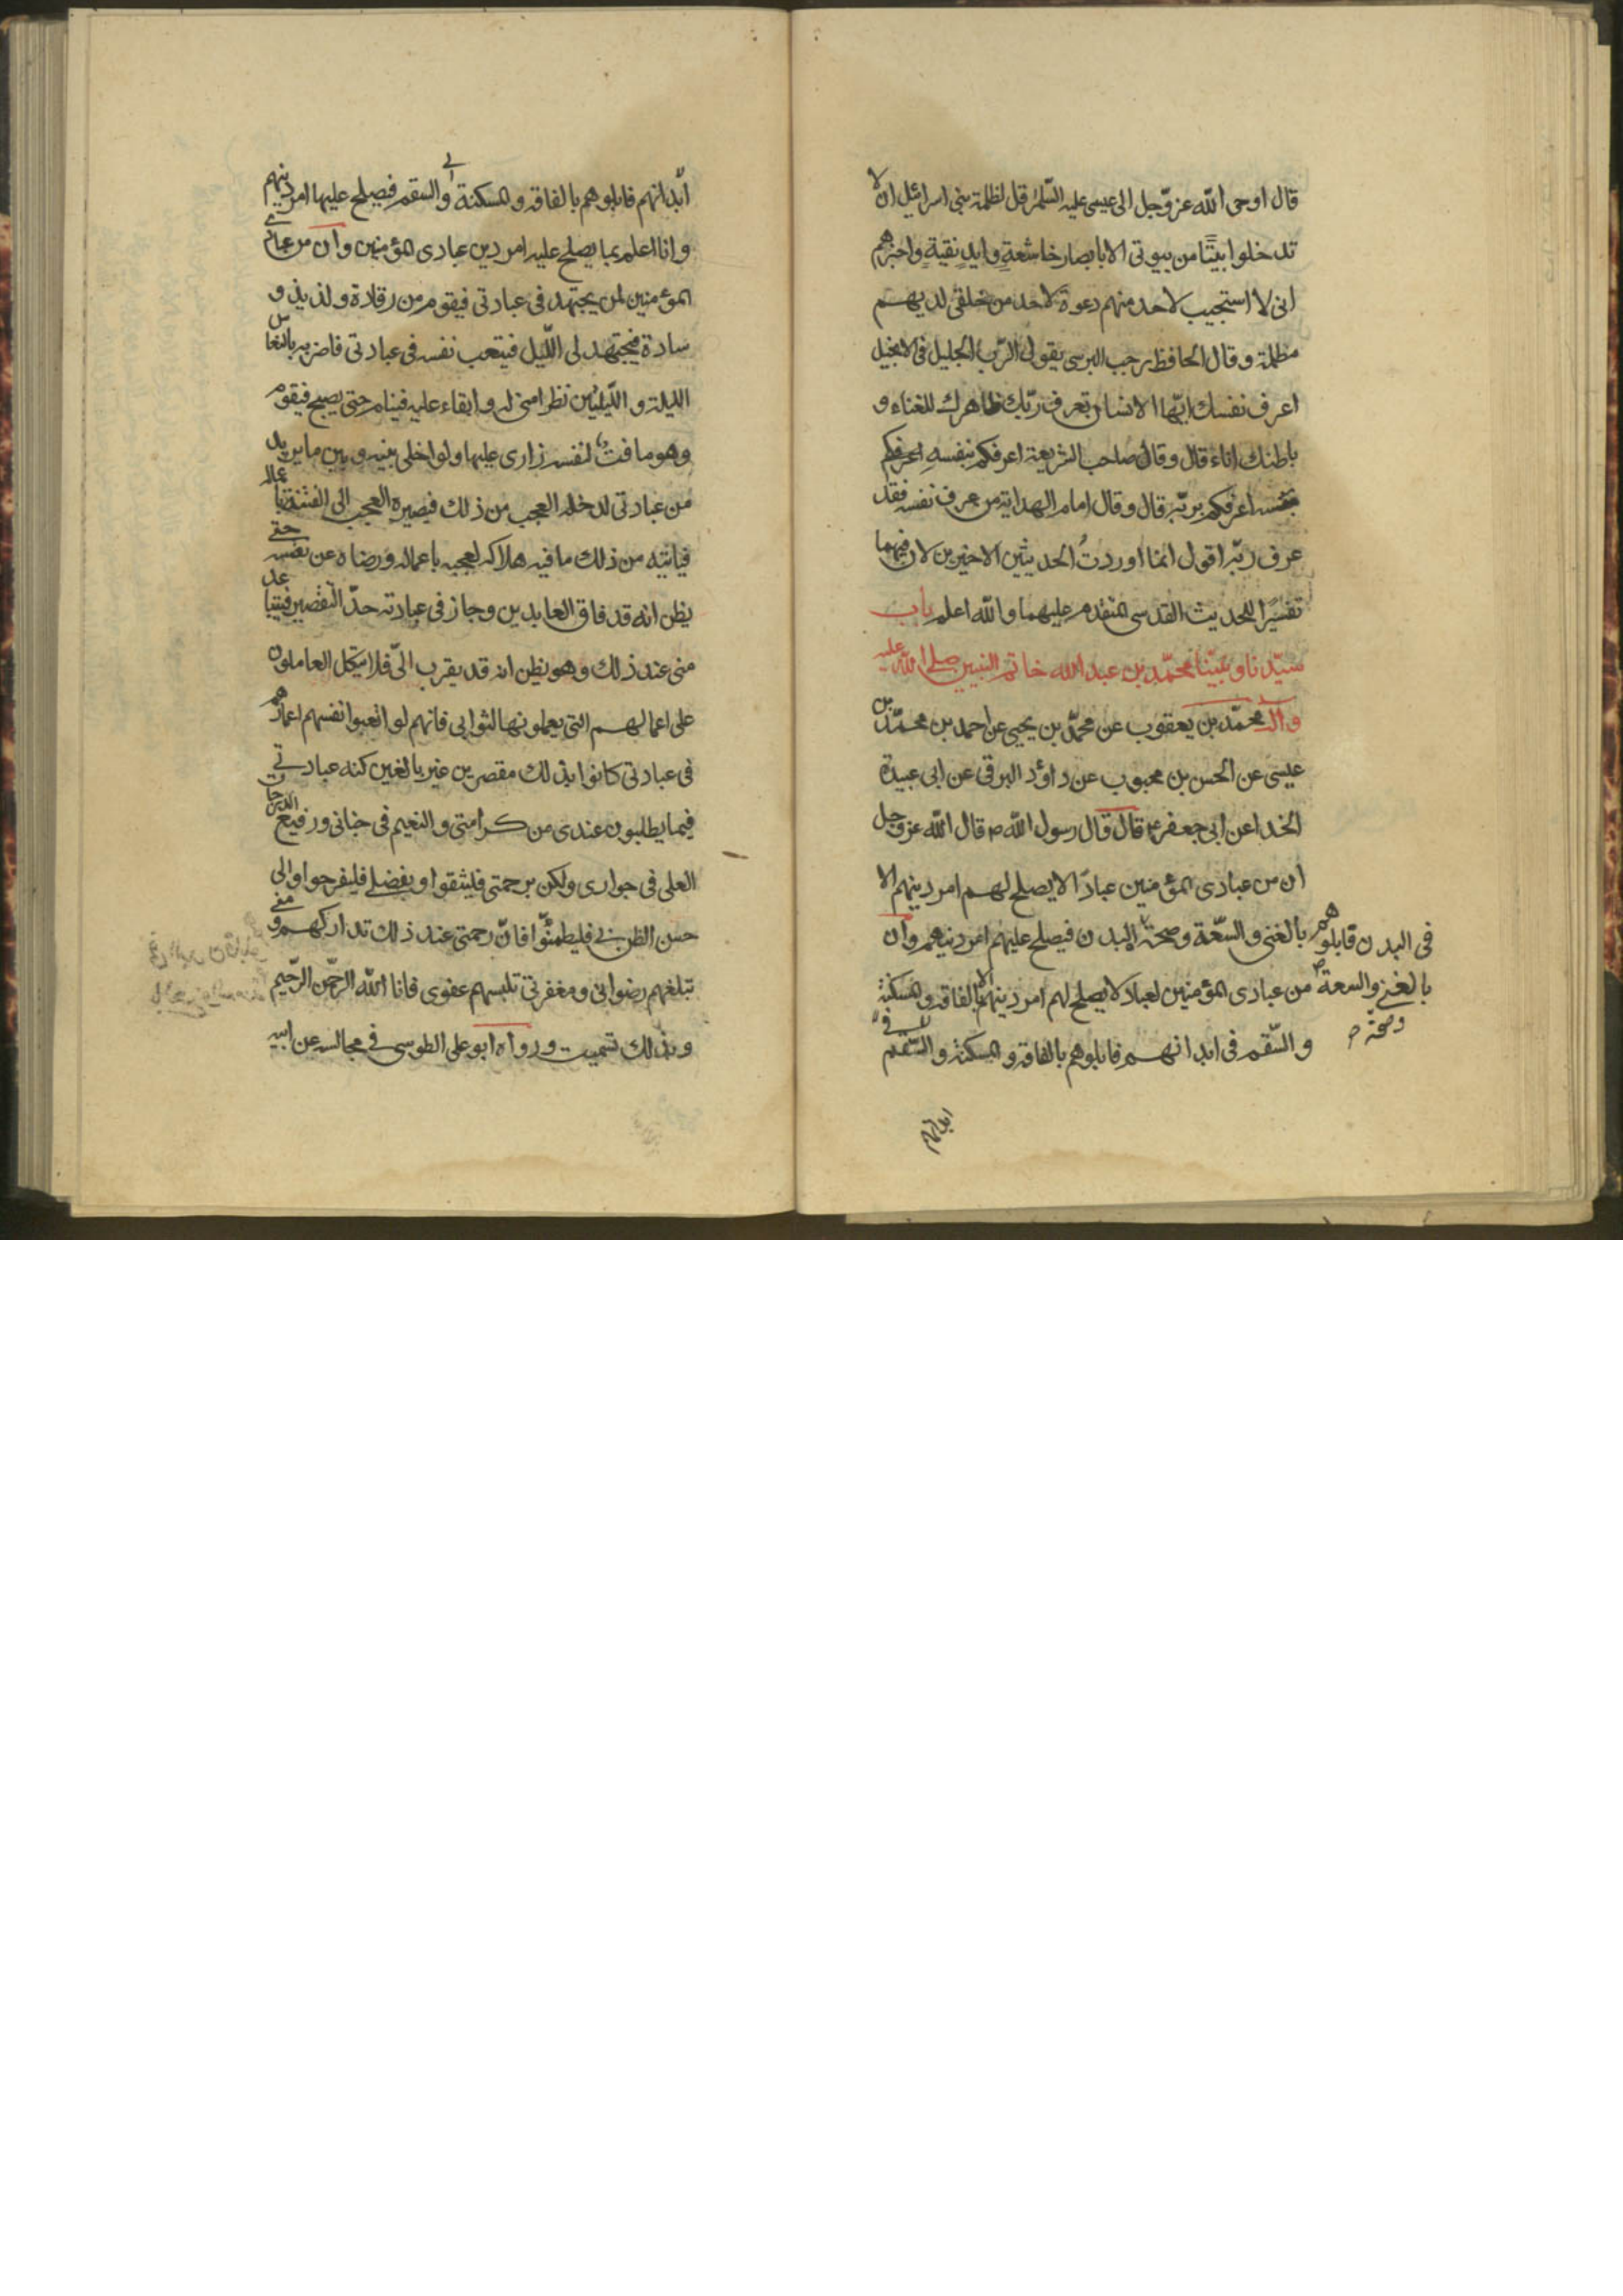 قال اوحى الله عز وجل الى عيسى عليه السّلم قل لظلمة بنى اسرائيل ان لا
تدخلوا بيتًا من بيوتى الا بابصار خاشعةٍ وايدٍ نقيةٍ واخبرهم
انى لا استجيب لاحد منهم دعوة لاحد من خلقى لديهم
مظلمة وقال الحافظ رجب البرسى يقول الرّب الجليل فى الانجيل
اعرف نفسك ايّها الانسان تعرف ربّك ظاهرك للفناء و
باطنك اناء قال وقال صاحب الشريعة اعرفكم بنفسهِ اعرفكم
بربّه قال وقال امام الهداية من عرف نفسه فقد
عرف ربّه اقول انما اوردتُ الحديثين الاخيرين لان فيهما
تفسيرًا للحديث القدسى المتقدم عليهما والله اعلم باب
سيّدنا ونبيّنا محمّد بن عبد الله خاتم النبيين صلى الله عليه
واله محمّد بن يعقوب عن محمّد بن يحيى عن احمد بن محمّد بن
عيسى عن الحسن بن محبوب عن داؤد البرقى عن ابى عبيدة
الخذا عن ابى جعفر ع قال قال رسول الله ص قال الله عز وجل
ان من عبادى المؤمنين عبادًا لا يصلح لهم امر دينهم الا
بالغنى والسّعة وصحة البدن فيصلح عليهم امر دينهم وان
من عبادى المؤمنين لعبادا لا يصلح لهم امر دينهم الا بالفاقه والمسكنة
والسّقم فى ابدانهم فابلوهم بالفاقه والمسكنة والسّقم فى
فى البدن فابلوهم
بالغنى والسعة
وصحة
ابدانهم
ابدانهم فابلوهم بالفاقه والمسكنة والسقم فيصلح عليها امر دينهم
وانا اعلم بما يصلح عليه امر دين عبادى المؤمنين وان من عبادى
المؤمنين لمن يجتهد فى عبادتى فيقوم من رقادة ولذيذ و
سادة فيجتهد لى اللّيل فيتعب نفسه فى عبادتى فاضربه بالنعاس
الليلة واللّيلتين نظرا منى له وابقاء عليه فينام حتى يصبح فيقوم
وهو ماقت لنفسه زارى عليها ولو اخلى بينه وبين ما يريد
من عبادتى لدخله العجب من ذلك فيصيره العجب الى الفتنة باعماله
فياتيه من ذلك ما فيه هلاكه لعجبه باعماله ورضاه عن نفسه حتى
يظن انه قد فاق العابدين وجاز فى عبادته حدّ التقصير فيتباعد
منى عند ذلك وهو يظن انه قد يقرب الىّ فلا يتكل العاملون
على اعمالهم التى يعملونها لثوابى فانهم لو اتعبوا انفسهم اعمارهم
فى عبادتى كانوا بذلك مقصرين غير بالغين كنه عبادتى
فيما يطلبون عندى من كرامتى والنعيم فى جنانى ورفيع الدرجات
العلى فى جوارى ولكن برحمتى فليثقوا وبفضلى فليفرحوا والى
حسن الظن بى فليطمئنّوا فانّ رحمتى عند ذلك تداركهم و منى
تبلغهم رضوانى ومغفرتى تلبسهم عفوى فانا الله الرّحمن الرّحيم
وبذلك تسميت ورواه ابو على الطوسى فى مجالسه عن ابيه